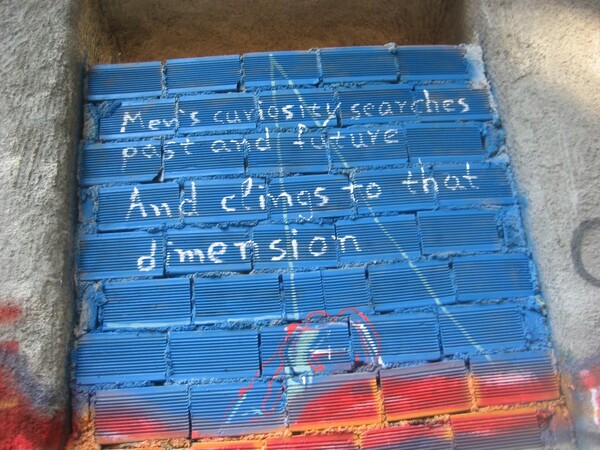 Men's curiosity searches
past and future
And clings to that
dimension